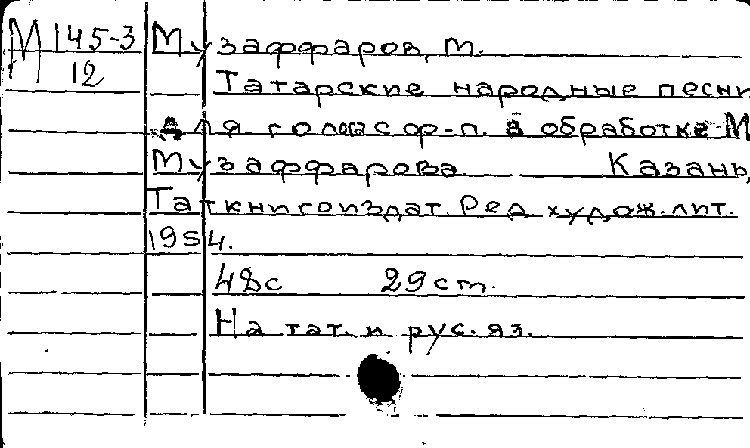 М 145-3
12
Музаффаров, М.
Татарские народные песни
для голоса с ф-п. в обработке М
Музаффарова Казань,
Таткнигоиздат. Ред. худож. лит.
1954.
48с 29 ст.
На тат. и рус. яз.